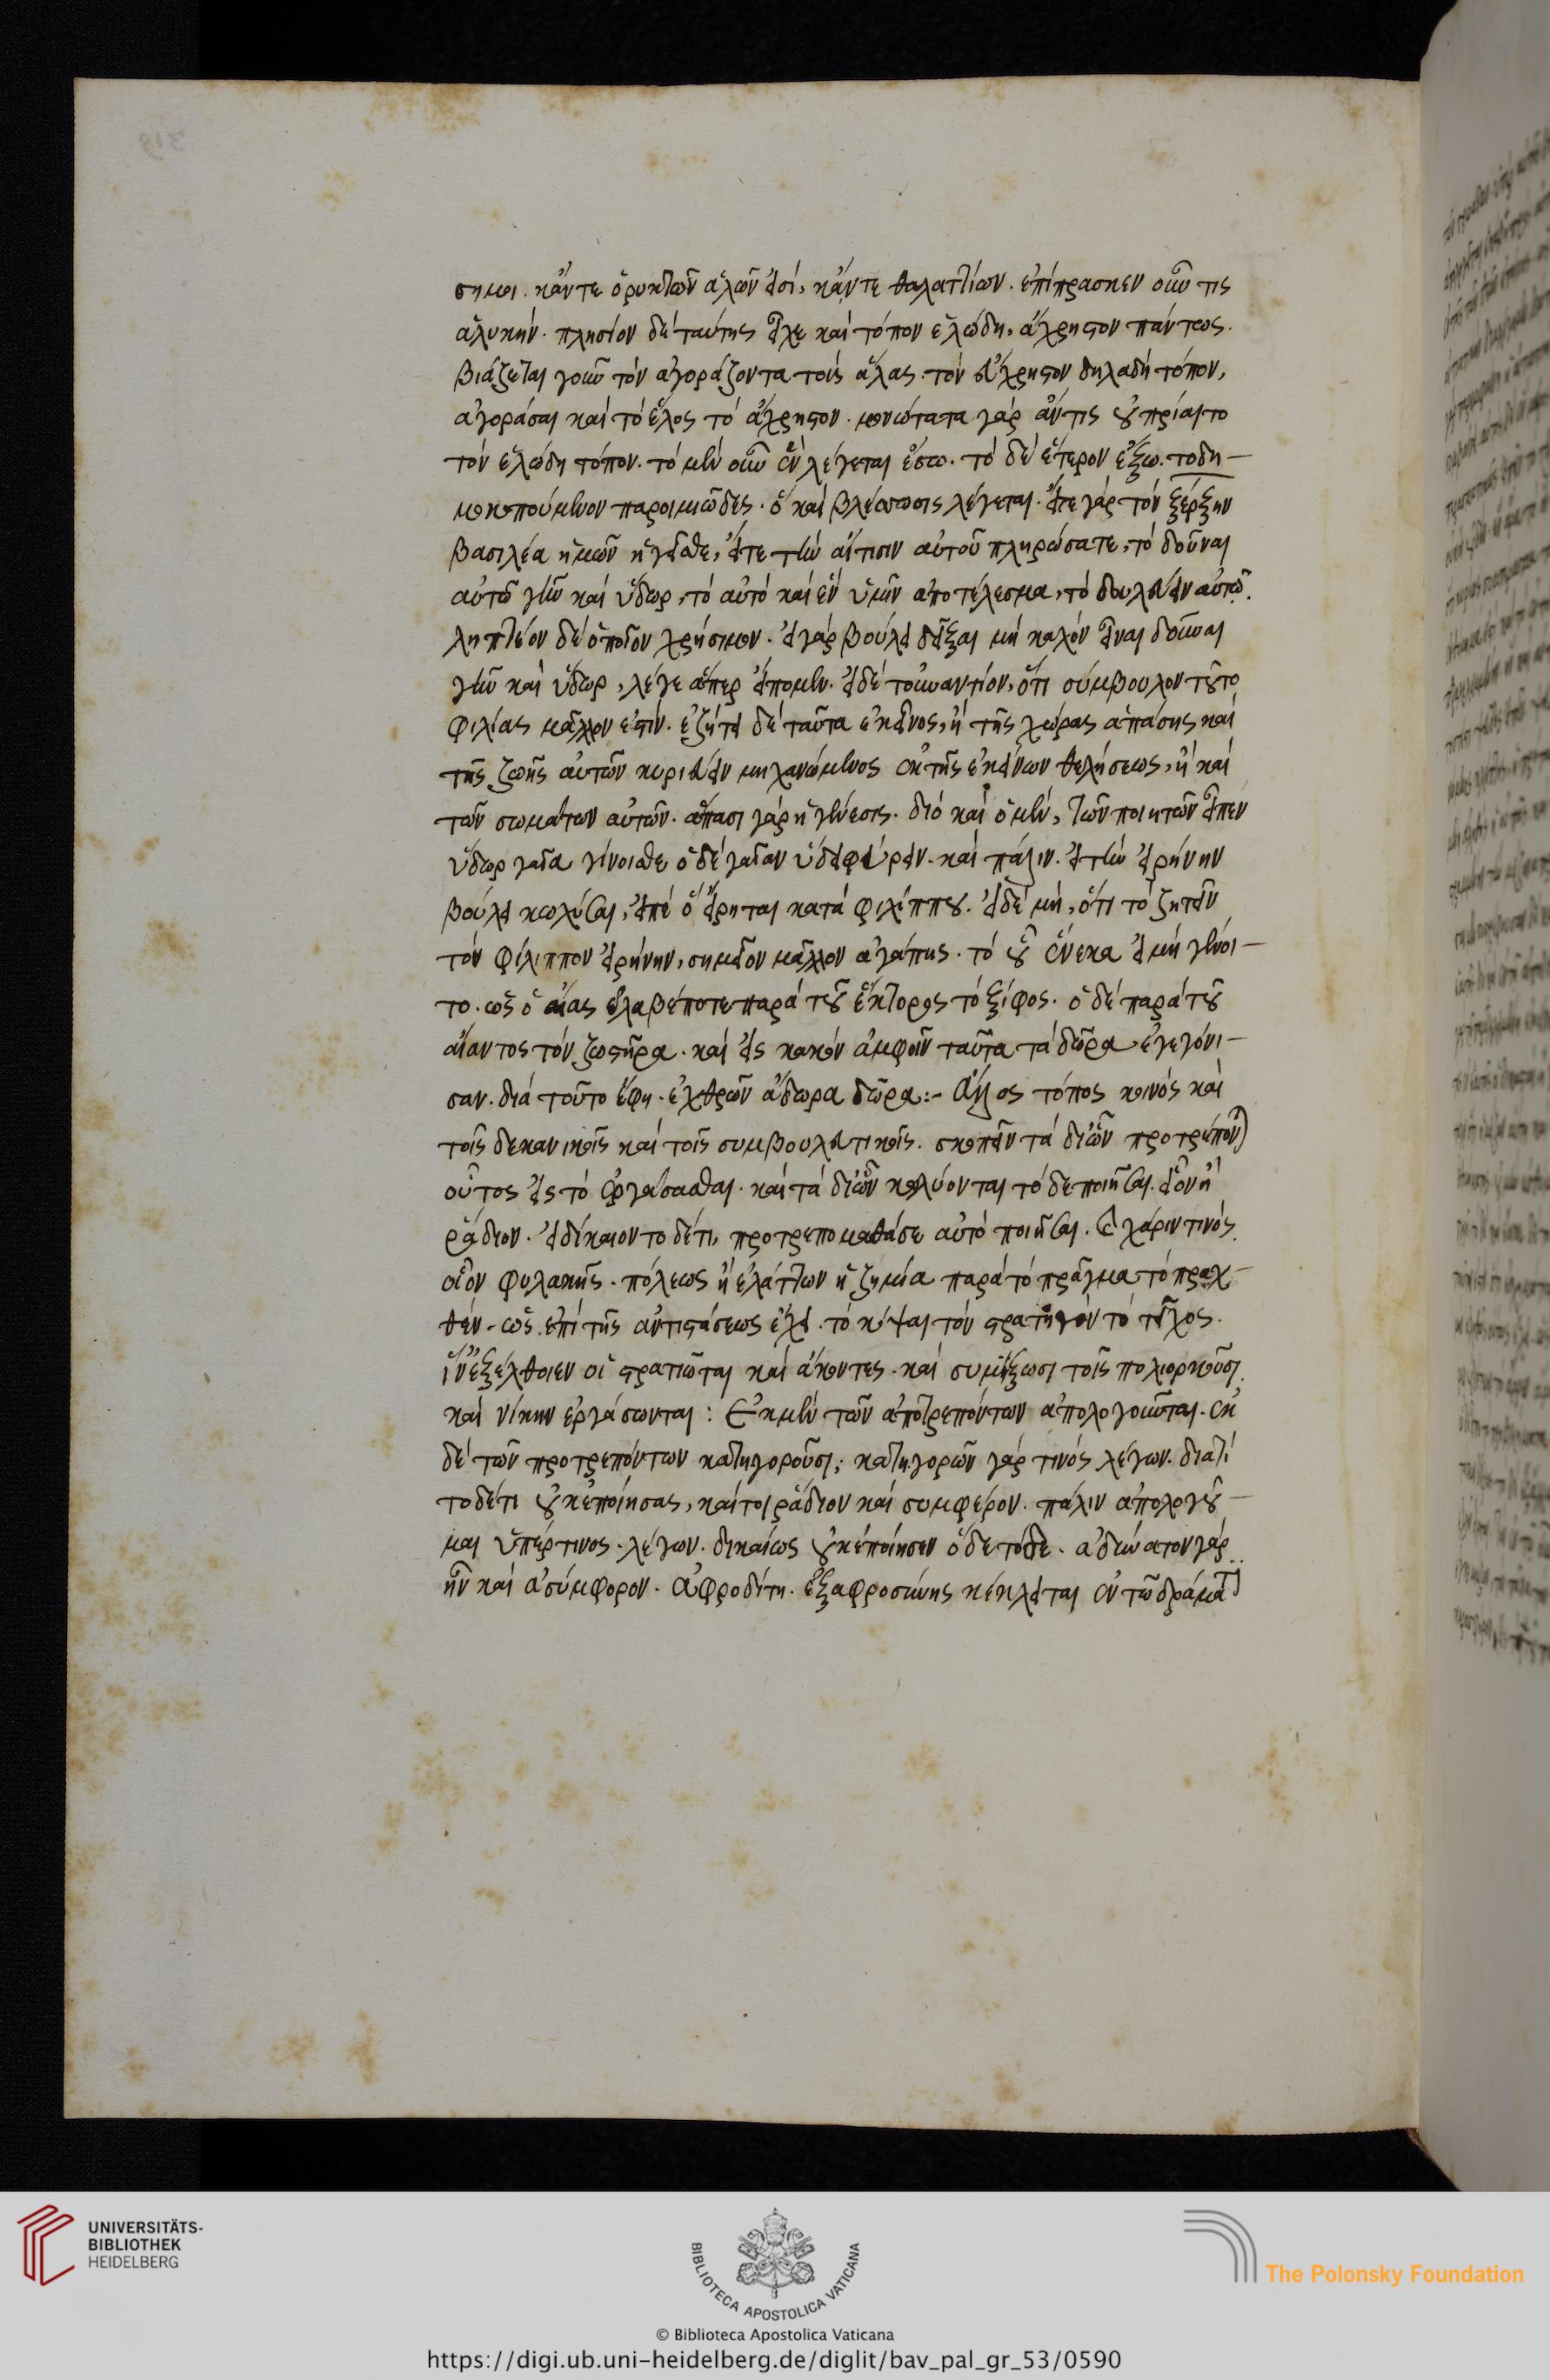 σημοι. κἄν τε ὀρυκτῶν ἁλῶν εἰσί, κἄν τε θαλαττίων. ἐπίπρασκεν οὖν τις
ἁλυκήν. πλησίον δὲ ταύτης εἶχε καὶ τόπον ἑλώδη, ἄχρηστον πάντως.
βιάζεται γοῦν τὸν ἀγοράζοντα τοὺς ἅλας. τὸν ἄχρηστον δηλαδὴ τόπον,
ἀγοράσαι καὶ τὸ ἕλος τὸ ἄχρηστον. γὰρ ἄν τις οὐ πρίαιτο
τὸν ἑλώδη τόπον. τὸ μὲν οὖν ἓν λέγεται ἔσω. τὸ δὲ ἕτερον ἔξω. τὸ δη-
μοκοπούμενον παροιμιῶδες. ὃ καὶ λέγεται. εἴτε γὰρ τὸν ξέρξην
βασιλέα ἡμῶν ἡγεῖσθε, εἴτε τὴν αἴτισιν αὐτοῦ πληρώσατε, τὸ δοῦναι
αὐτῶ γῆν καὶ ὕδωρ, τὸ αὐτὸ καὶ ἓν ὑμῖν ἀποτέλεσμα, τὸ δουλεύειν αὐτῶ.
ληπτέον δὲ ὁποῖον χρήσιμον. εἰ γὰρ βούλει δεῖξαι μὴ καλὸν εἶναι δοῦναι
γῆν καὶ ὕδωρ, λέγε ἅπερ εἴπομεν. εἰ δὲ τοὐναντίον, ὅτι σύμβουλον τοῦτο
φιλίας μᾶλλον ἐστίν. ἐζήτει δὲ ταῦτα ἐκεῖνος, ἢ τῆς χώρας ἁπάσης καὶ
τῆς ζωῆς αὐτῶν κυριεύειν μηχανώμενος ἐκ τῆς ἐκείνων θελήσεως, ἢ καὶ
τῶν σωμάτων αὐτῶν. ἅπασι γὰρ ἡ γένεσις. διὸ καὶ ὁ μὲν, τῶν ποιητῶν εἶπεν
ὕδωρ γαῖα γίνοισθε ὁ δὲ γαῖαν καὶ πάλιν. εἰ τὴν εἰρήνην
βούλει κωλῦσαι, εἰπὲ ὃ εἴρηται κατὰ φιλίππου. εἰ δὲ μὴ, ὅτι τὸ ζητεῖν
τὸν φίλιππον εἰρήνην, σημεῖον μᾶλλον ἀγάπης. τὸ οὗ ἕνεκα εἰ μὴ γένοι-
το. ὡς ὁ αἴας ἔλαβέ ποτε παρὰ τοῦ ἕκτορος τὸ ξίφος. ὁ δὲ παρὰ τοῦ
αἴαντος τὸν ζωστῆρα. καὶ εἰς κακὸν ἀμφοῖν ταῦτα τὰ δῶρα ἐγεγόνι-
σαν. διὰ τοῦτο ἔφη. ἐχθρῶν ἄδωρα δῶρα:- Ἄλλος τόπος κοινὸς καὶ
τοῖς δικανικοῖς καὶ τοῖς συμβουλευτικοῖς. σκοπεῖν τὰ δι ὧν προτρέπον
οὗτος εἰς τὸ ἐργάσασθαι. καὶ τὰ δι ὧν κωλύονται τὸ δε ποιῆσαι. οἷον ἢ
ῥάδιον. εἰ δίκαιον τὸ δέ τι, προτρέπομαι θᾶσε αὐτὸ ποιῆσαι. χάριν τινός.
οἷον φυλακῆς. πόλεως ἢ ἐλάττων ἡ ζημία παρὰ τὸ πρᾶγμα τὸ πραχ-
θέν. ὡς ἐπὶ τῆς ἀντιστάσεως ἔχει. τὸ κόψαι τὸν στρατηγὸν τὸ τεῖχος.
ἵν ἐξέλθοιεν οἱ στρατιῶται καὶ ἄκοντες. καὶ συμμίξωσι τοῖς πολιορκοῦσι.
καὶ νίκην ἐργάσωνται: Ἐκ μὲν τῶν ἀποτρεπόντων ἀπολογοῦνται. ἐκ
δὲ τῶν προτρεπόντων κατηγοροῦσι; κατηγορῶν γάρ τινος λέγων. διατί
τὸ δέ τι οὐκ ἐποίησας, καίτοι ῥάδιον καὶ συμφέρον. πάλιν ἀπολογοῦ-
μαι ὑπέρ τινος. λέγων. δικαίως οὐκ ἐποίησεν ὅδε τόδε. ἀδύνατον γὰρ
ἦν καὶ ἀσύμφορον. Ἀφροδίτη. ἐξ ἀφροσύνης κέκληται ἐν τῶ δράματι
UNIVERSITÄTS-
BIBLIOTHEK
HEIDELBERG
BIBLIOTECA APOSTOLICA VATICANA
The Polonsky Foundation
© Biblioteca Apostolica Vaticana
https://digi.ub.uni-heidelberg.de/diglit/bav_pal_gr_53/0590